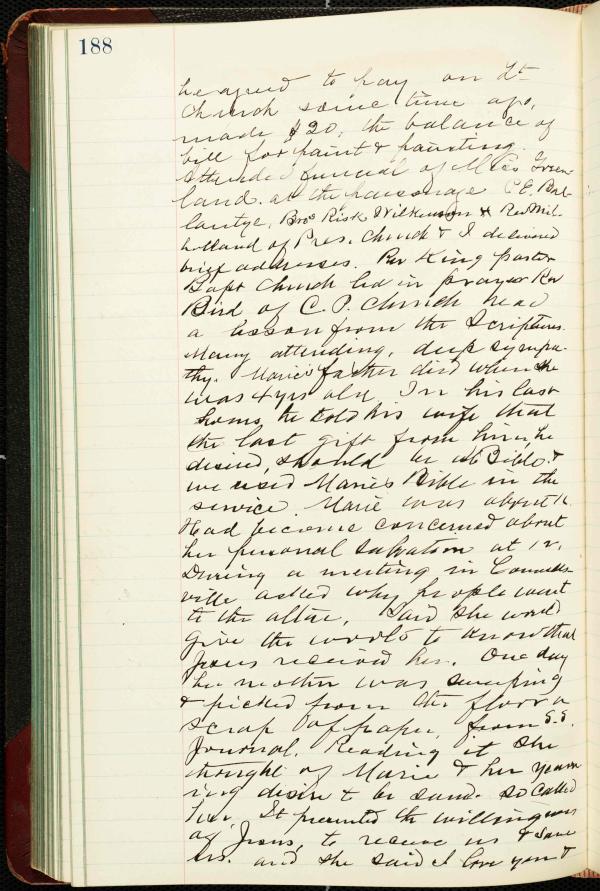 188
he agreed to pay on Lt
Church some time ago,
made $20, the balance of
bill for paint & painting.
Attended funeral of Miss Green-
land at the parsonage C.E. Bal-
lantye, Bros Risk Wilkinson & Rev Mil-
holland of Pres. Church & I delivered
brief addresses. Rev King pastor
Bapt Church led in prayer Rev
Bird of C.P. Church read
a lesson from the Scriptures.
Many attending, deep sympa-
thy. Marie's father died when she
was 4 yrs old. In his last
hours, he told his wife that
the last gift from him, he
desired, should be a Bible &
we used Marie's Bible in the
service. Marie was about
Had become concerned about
her personal salvation at 12.
During a meeting in Connells-
ville asked why people went
to the altar, Said she would
give the world to know that
Jesus received her. One day
her mother was sweeping
& picked from the floor a
scrap of paper, from S.S.
Journal. Reading it she
thought of Marie & her yearn
ing desire to be saved. So called
her, It presented the willingness
of Jesus, to receive us & save
us. and she said I love you &